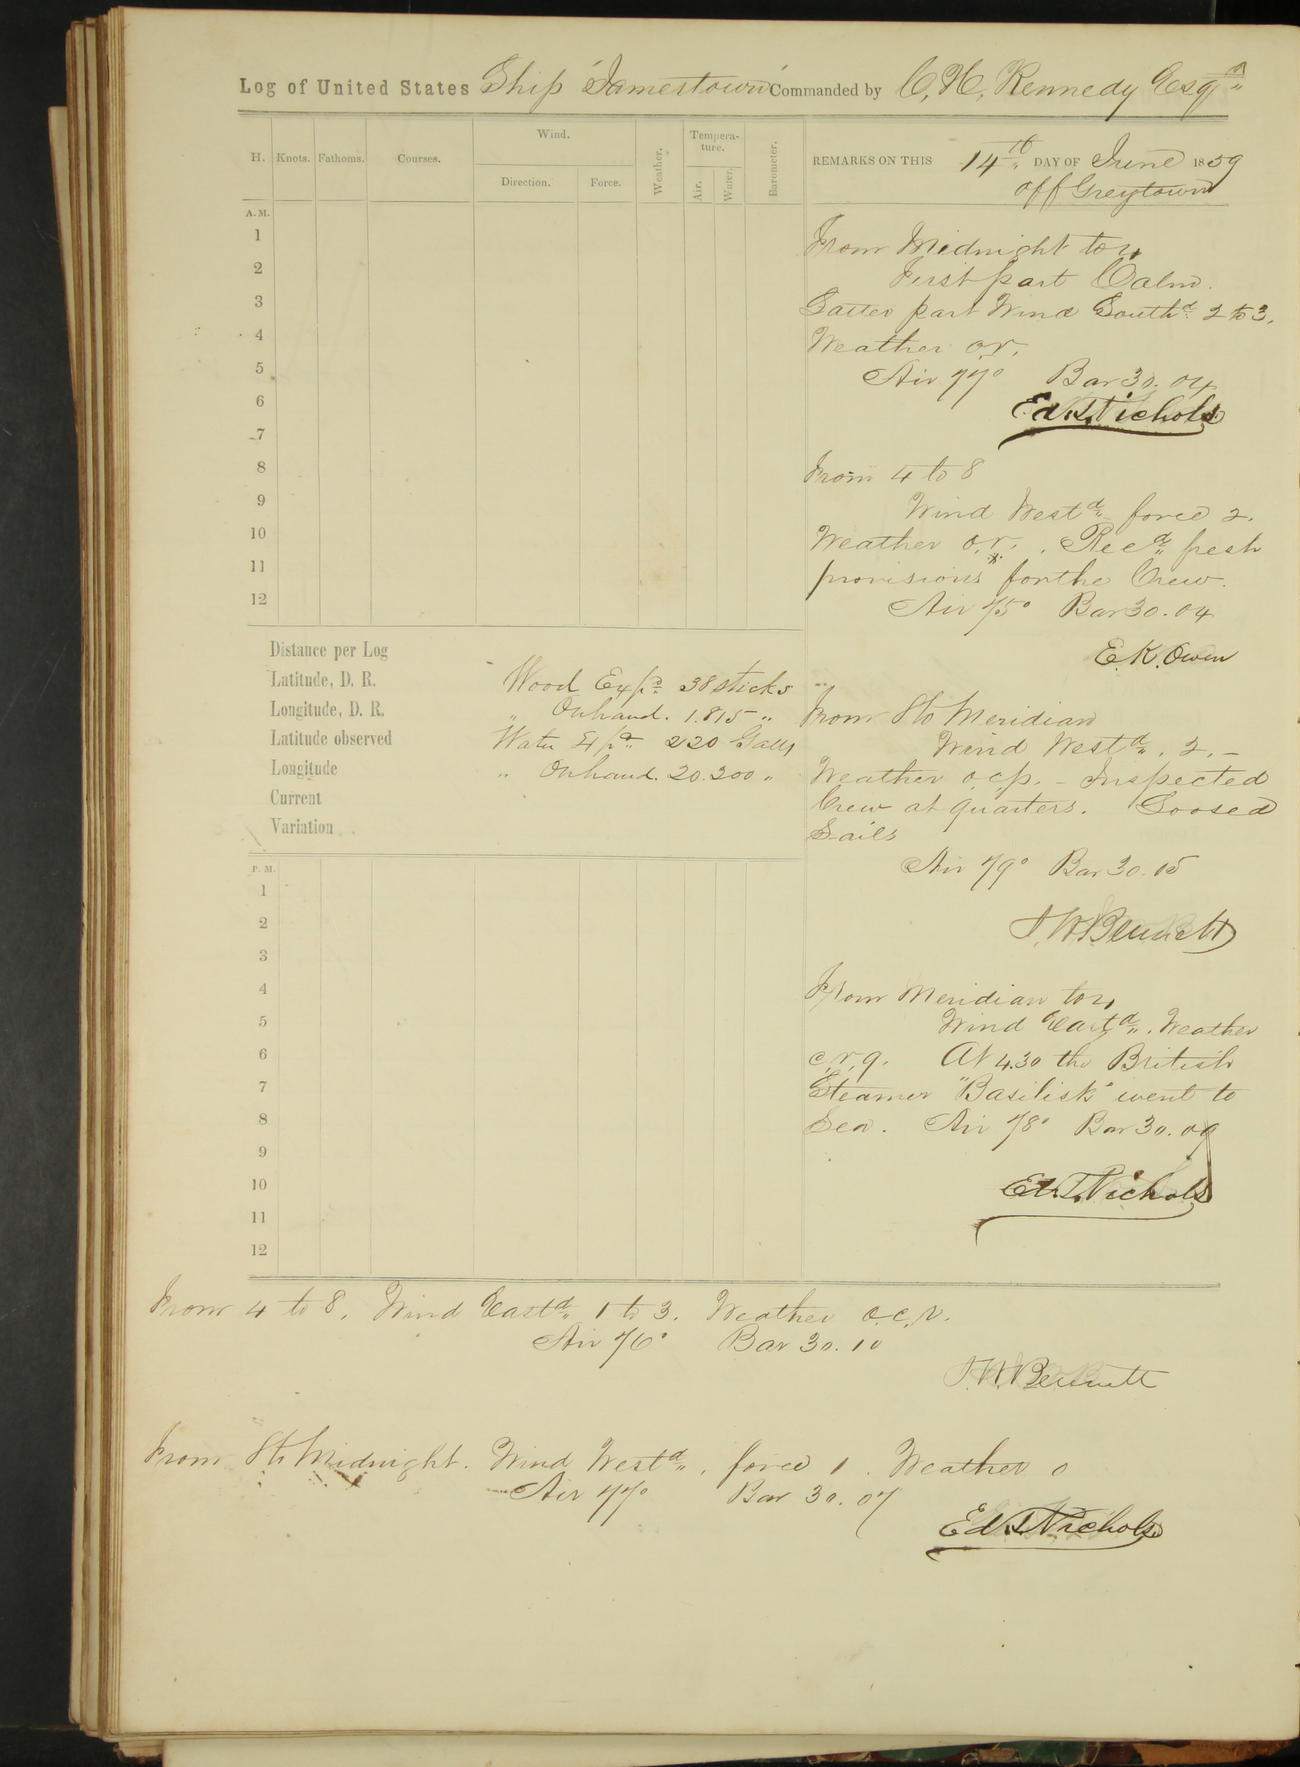 Log of United States Ship "Jamestown" Commanded by C. H. Kennedy Esqr
H. Knots. Fathoms. Courses. Wind. Direction. Force. Weather. Tempera-ture. Air. Water. Barometer.
REMARKS ON THIS 14th DAY OF June 1859
off Greytown
A. M.
1
2
3
4
5
6
7
8
9
10
11
12
From Midnight to 4
First part Calm.
Latter part Wind Southd 2 to 3.
Weather o.r.
Air 77° Bar 30.04
Ed. T. Nichols
From 4 to 8
Wind Westd force 2.
Weather o.r. Recd fresh
provisions for the Crew.
Air 75° Bar 30.04
E. K. Owen
Distance per Log
Latitude, D. R.
Longitude, D. R.
Latitude observed
Longitude
Current
Variation
Wood Expd 38 sticks
" Onhand. 1.815 "
Water Expd 220 Galls
" Onhand. 20.200 "
From 8 to Meridian
Wind Westd. 2. –
Weather o.c.p. – Inspected
Crew at quarters. Loosed
Sails
Air 79° Bar 30.15
J. W. Bennett
P. M.
1
2
3
4
5
6
7
8
9
10
11
12
From Meridian to 4
Wind Eastd. Weather
c.r.q. At 4.30 the British
Steamer "Basilisk" went to
Sea. Air 78° Bar 30.09
Ed. T. Nichols
From 4 to 8. Wind Eastd 1 to 3. Weather o.c.r.
Air 76° Bar 30.10
J. W. Bennett
From 8 to Midnight. Wind Westd, force 1. Weather o
Air 77° Bar 30.07
Ed. T. Nichols